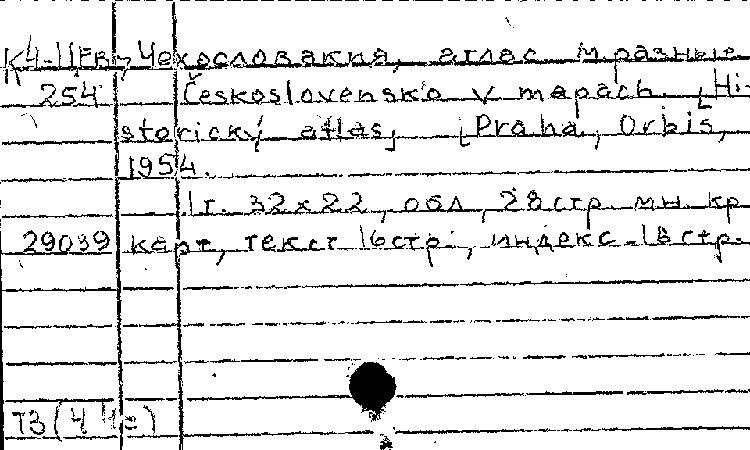 К4-II ЕВр Чехословакия, атлас М разные
254 Československo v mapach. [Hi-
storický atlas] [Praha, Orbis,
1954.
1т. 32х22, обл, 28стр. мн. кр
29039 карт, текст 16стр., индекс-18стр.
Т3(4Че)